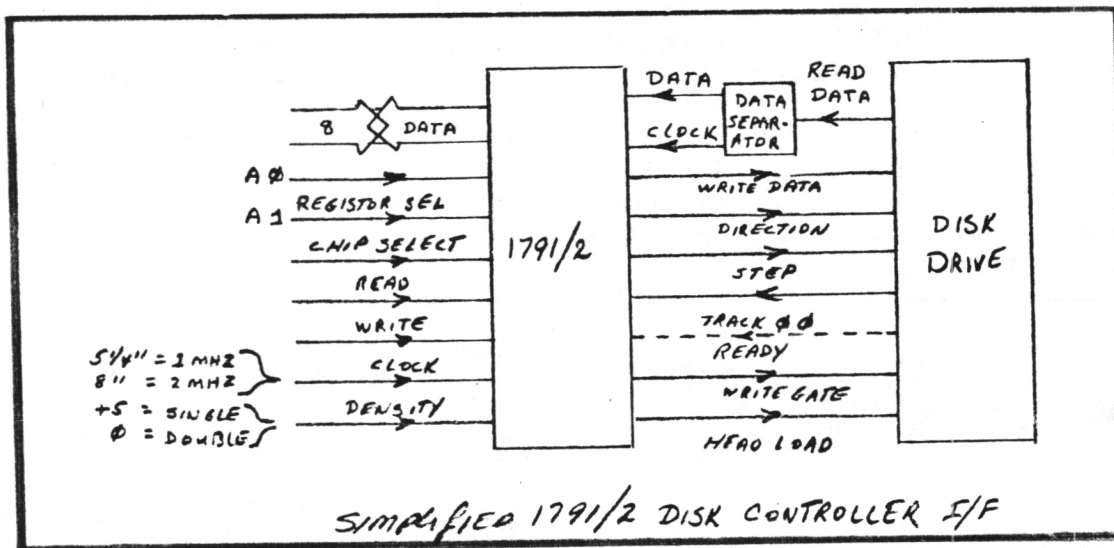 8 DATA
A Ø
REGISTOR SEL
A 1
CHIP SELECT
READ
WRITE
5 1/4" = 1 MHZ
8" = 2 MHZ
CLOCK
+5 = SINGLE
Ø = DOUBLE
DENSITY
1791/2
DATA
CLOCK
DATA
SEPAR-
ATOR
READ
DATA
WRITE DATA
DIRECTION
STEP
TRACK ØØ
READY
WRITE GATE
HEAD LOAD
DISK
DRIVE
SIMPLIFIED 1791/2 DISK CONTROLLER I/F